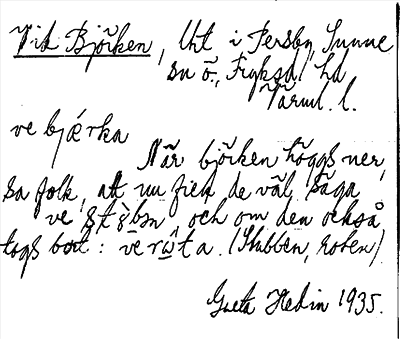 Vid Björken, Uht i Persby Sunne
sn ö., Fryksd. hd
Värml. l.
ve bjǽrka
När björken höggs ner,
sa folk, att nu fick de väl säga
ve støbən och om den också
togs bort: ve rωta. (Stubben, roten)
Greta Hedin 1935.